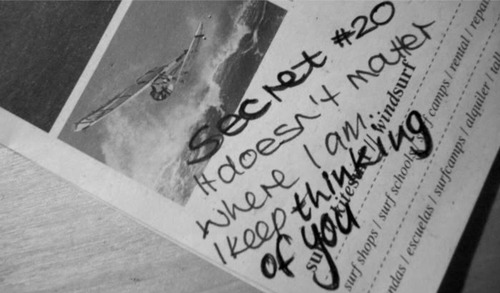 Secret #20
It doesn't matter
where I am
I keep thinking
of you
windsurf
surf shops / surf schools / surf camps / rental / repai
ndas / escuelas / surfcamps / alquiler / tall